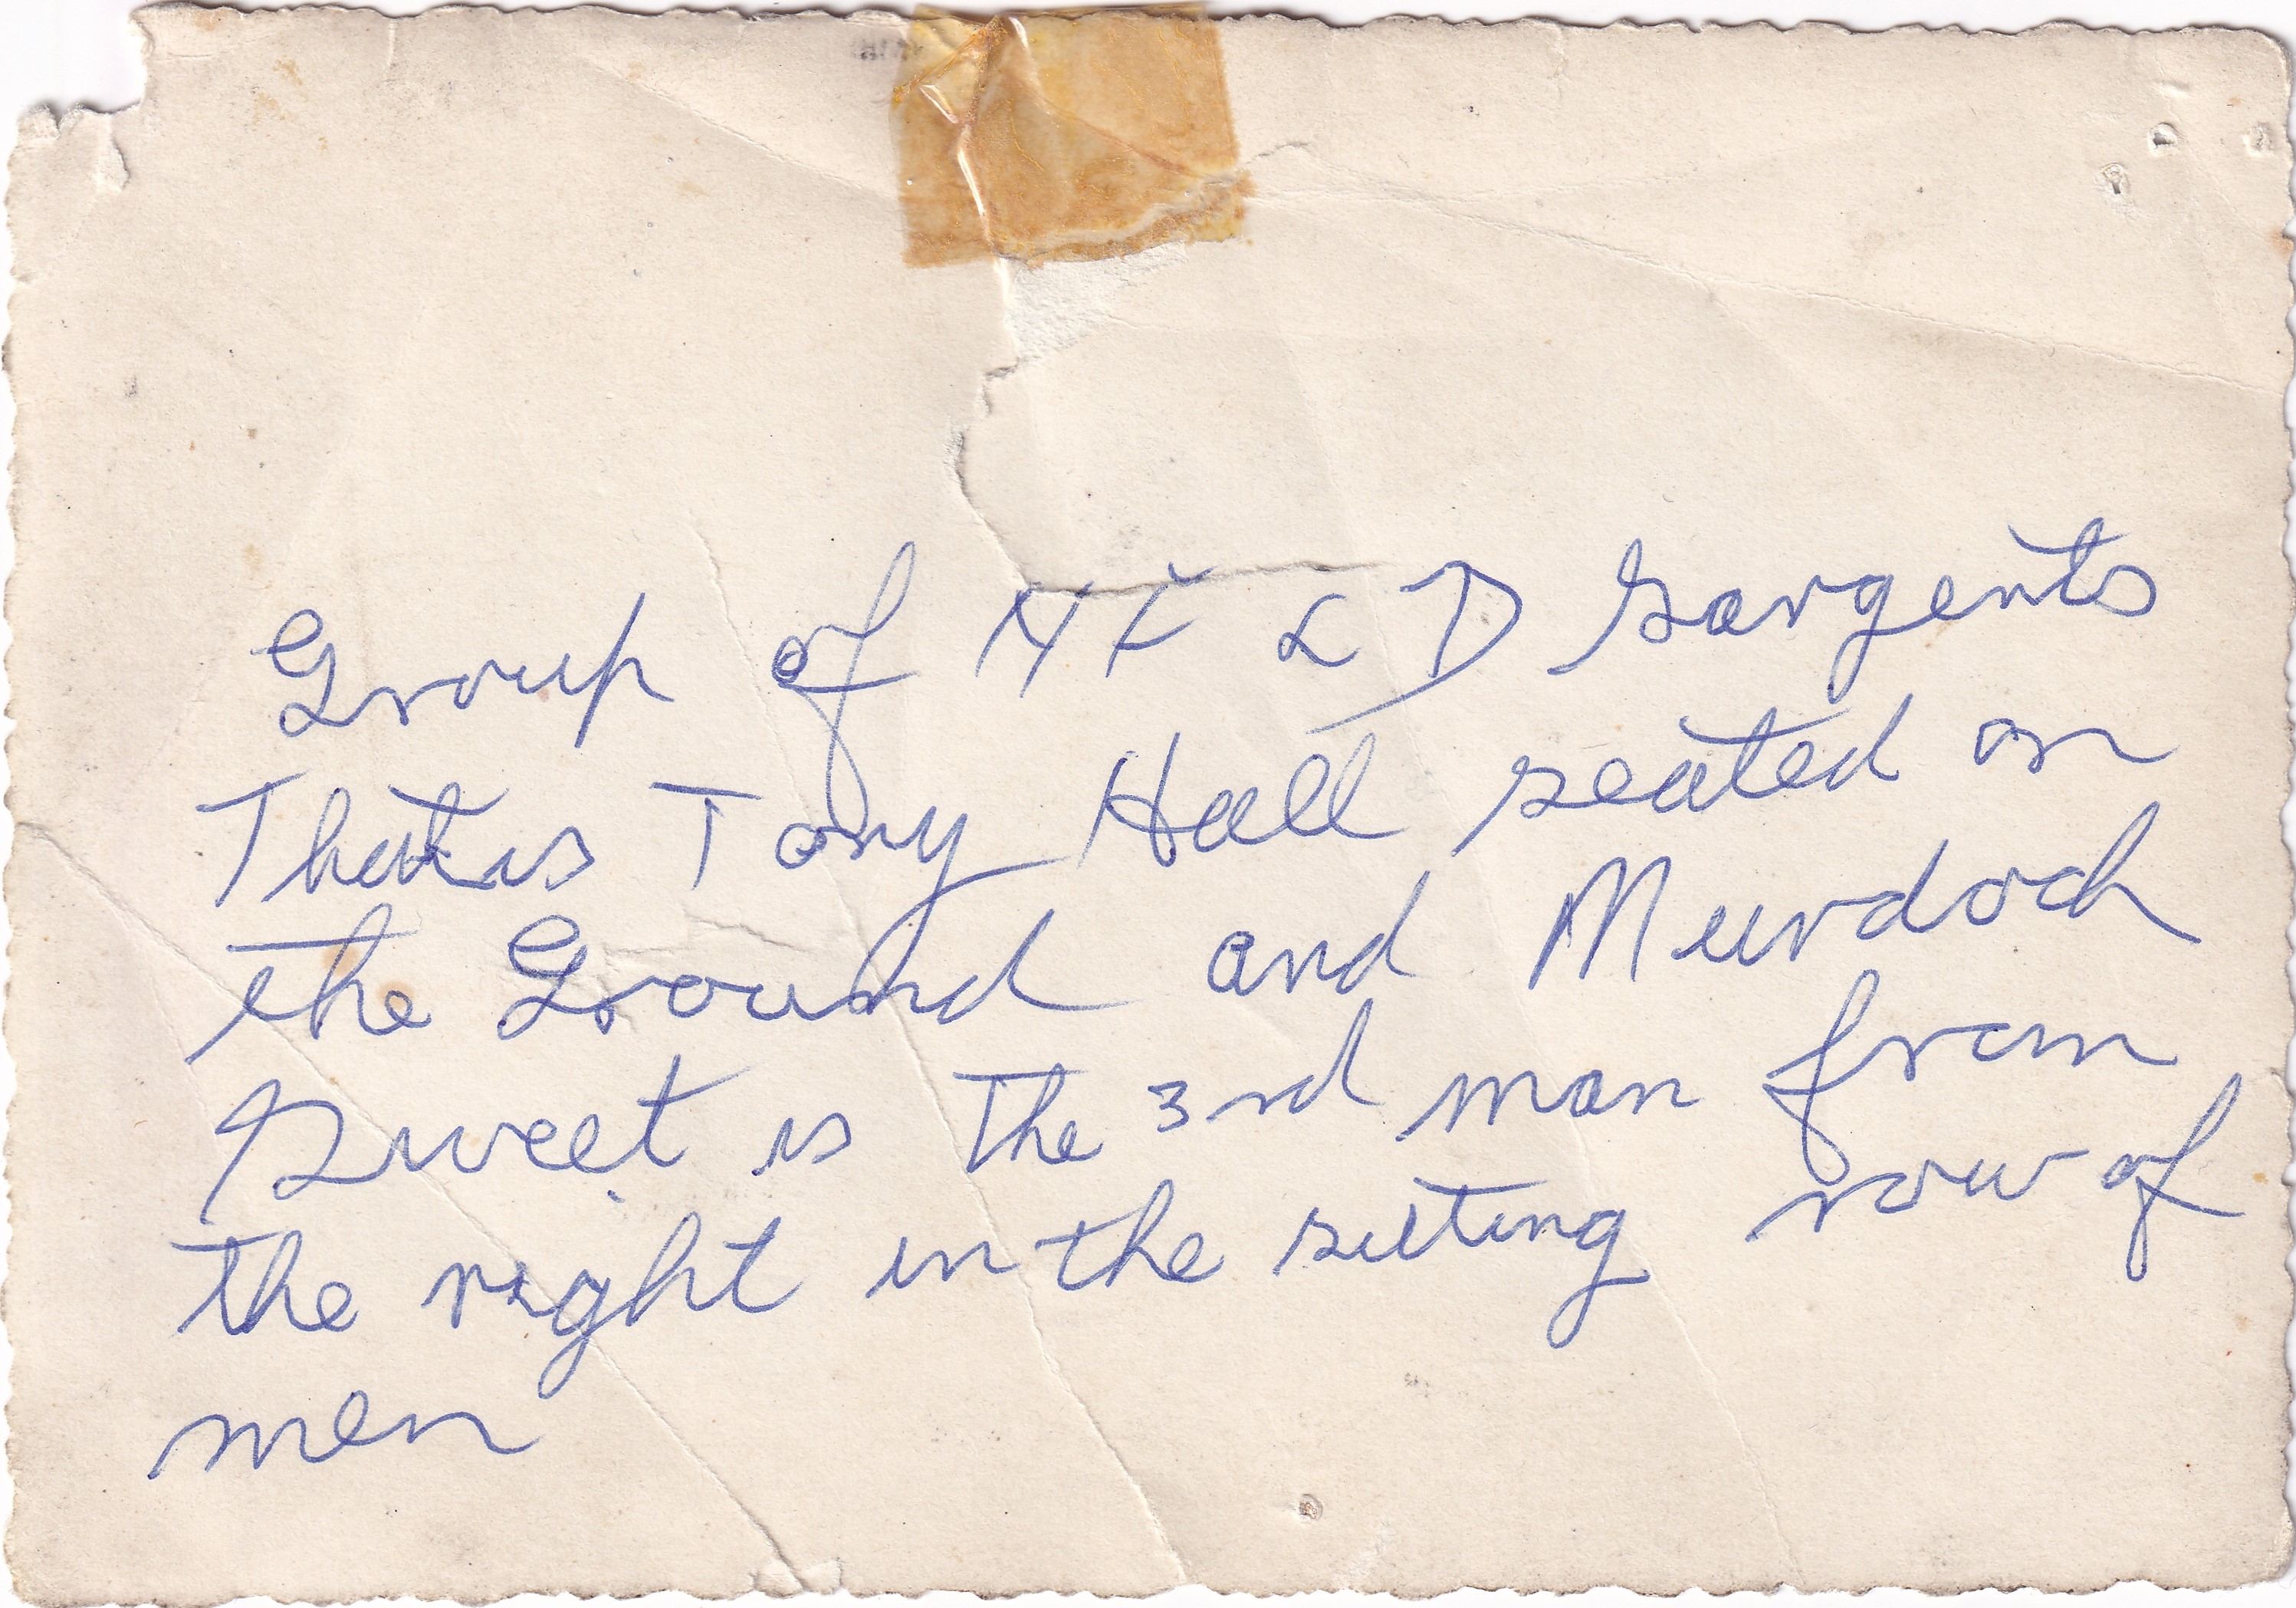 Group of NF L D Sargents
That is Tony Hall seated on
the Ground and Murdoch
Sweet is The 3rd man from
the right in the sitting row of
men